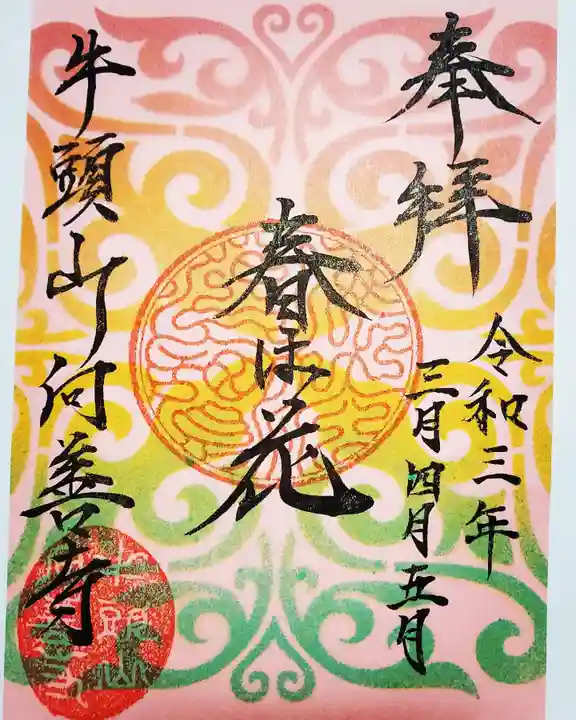 奉拝
令和三年
三月四月五月
春は花
牛頭山付善寺